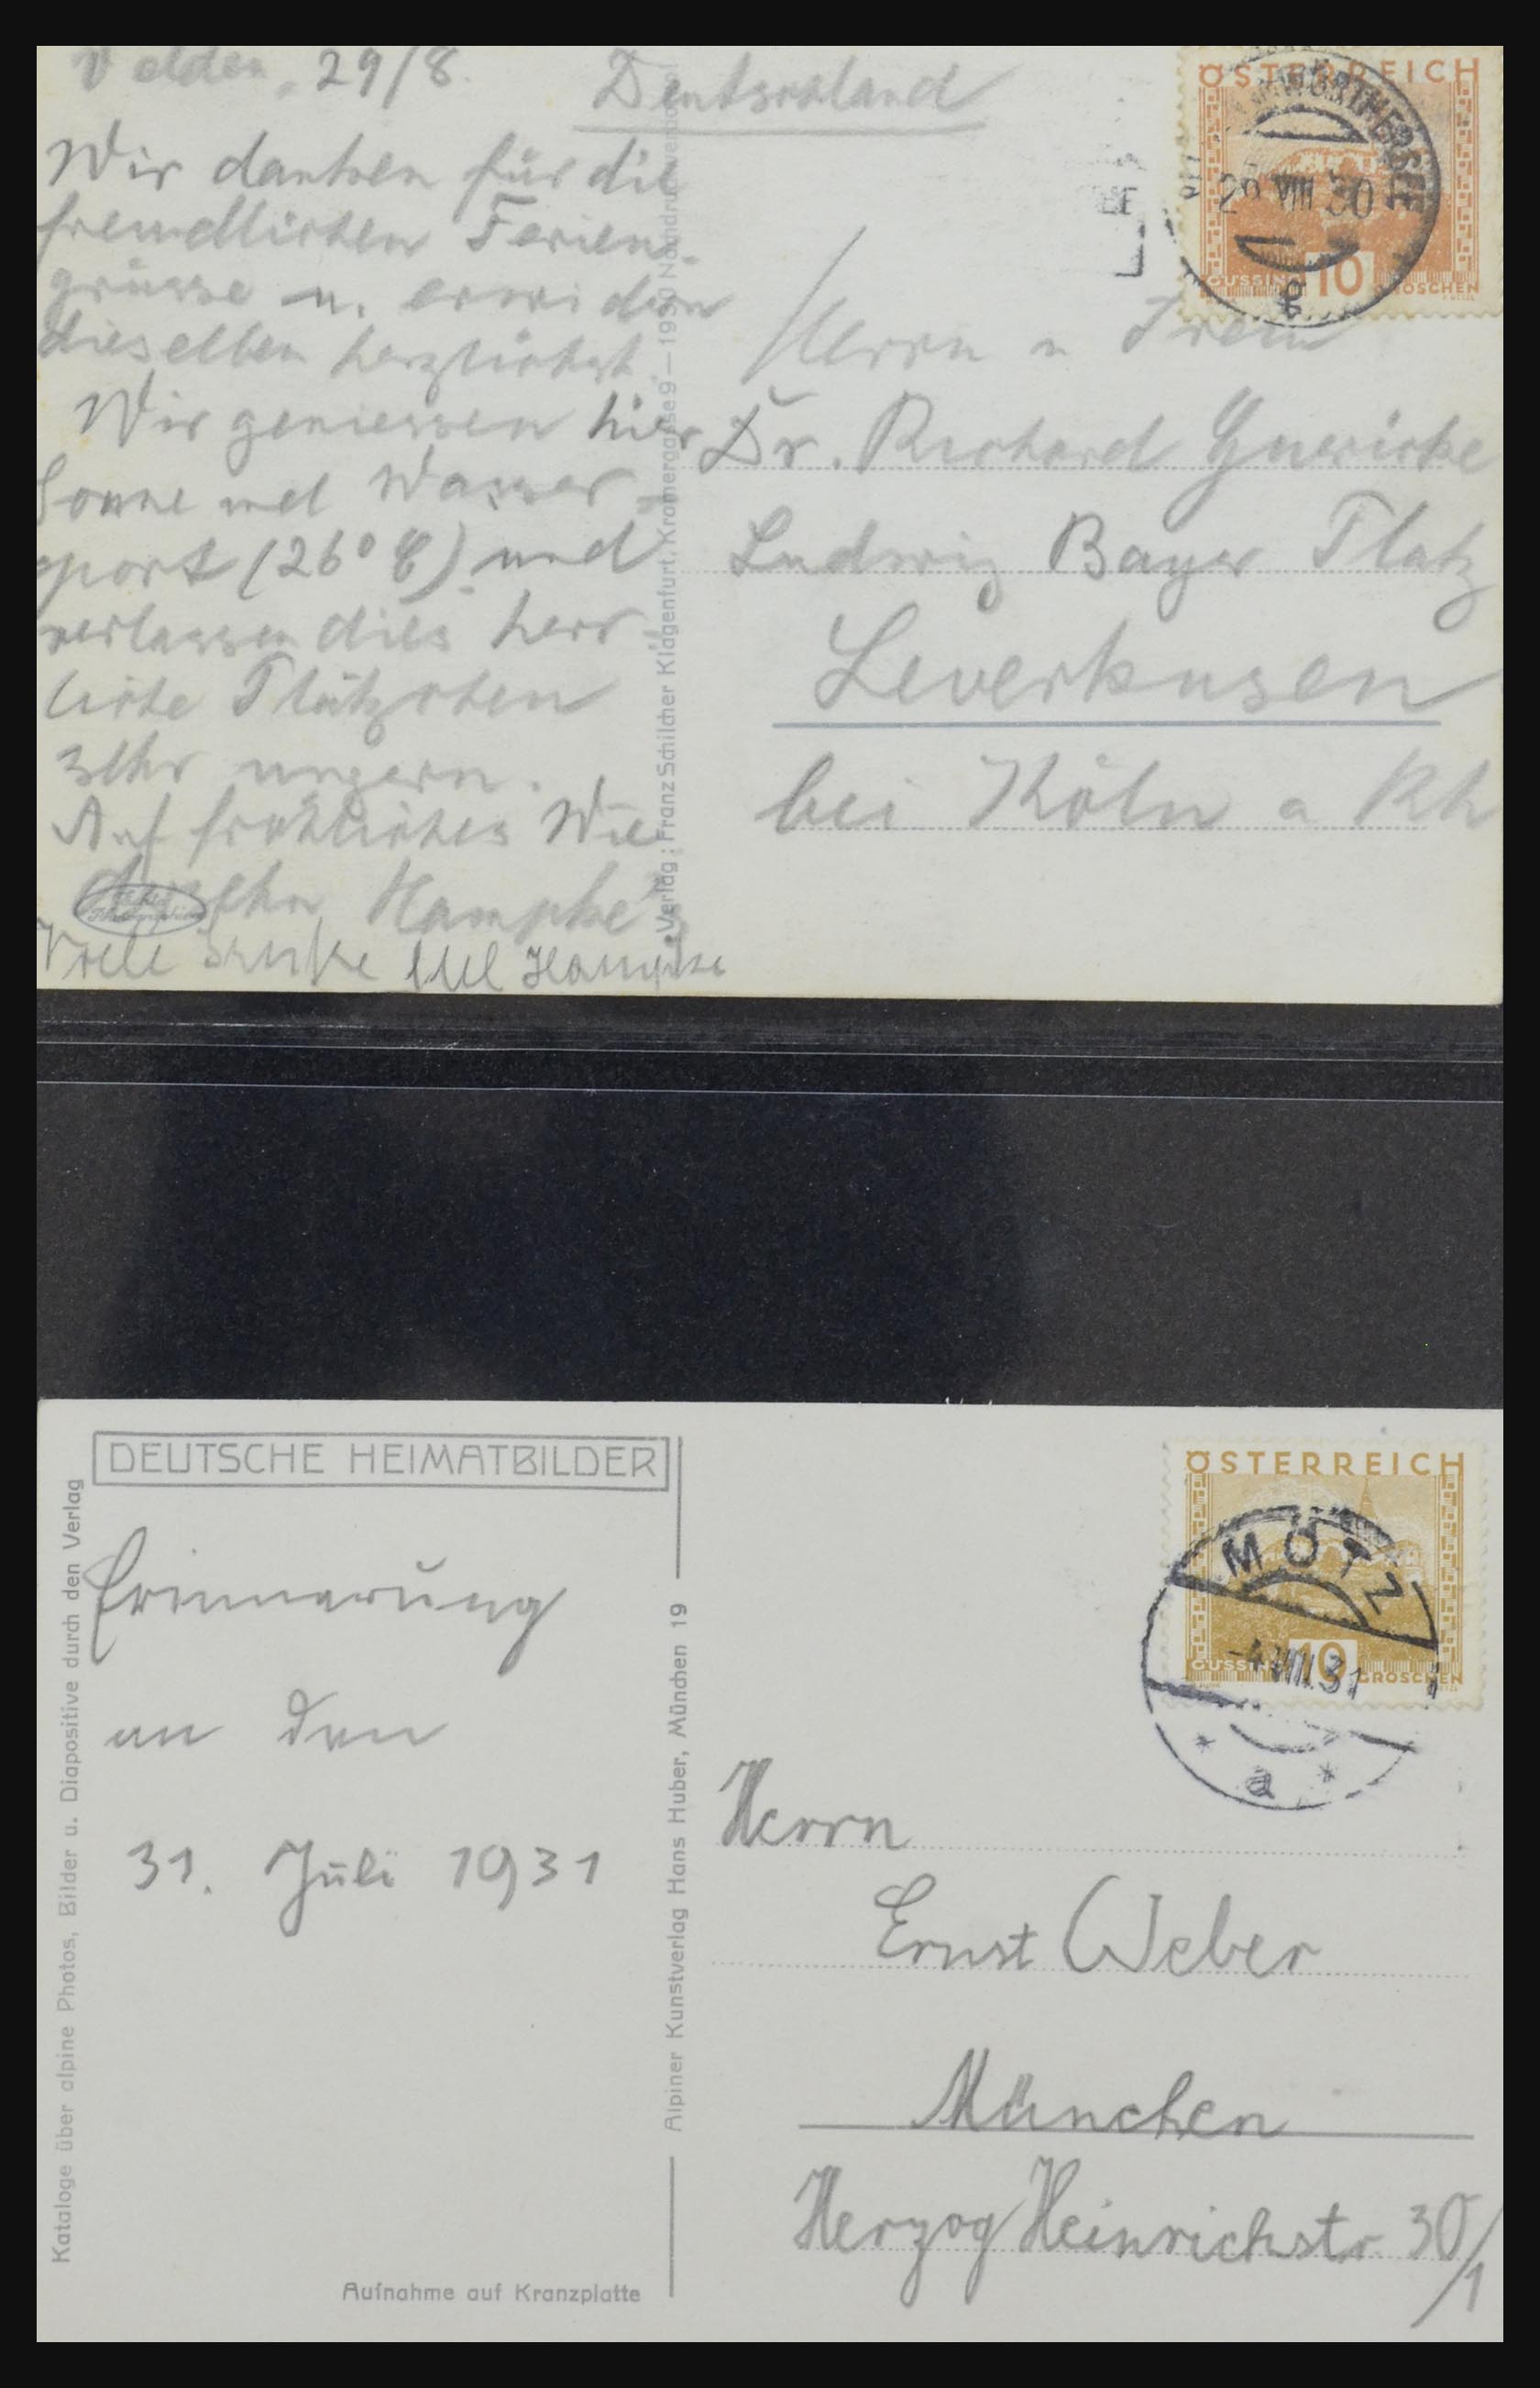 Velden, 29/8.
Deutschland
Wir danken für die
freundlichen Ferien-
grüsse u. erwidern
dieselben herzlichst.
Wir geniessen hier
Sonne und Wasser-
sport (26° C) und
verlassen dies herr-
liche Plätzchen
sehr ungern.
Auf fröhliches Wie-
Hampke
Viele Grüße Hampke
Verlag: Franz Schilcher Klagenfurt, Kramergasse 9 — 1930 Nachdruck
ÖSTERREICH
WÖRTHERSEE
29 VIII 30
GÜSSING 10 GROSCHEN
Herrn u Frau
Dr. Richard
Ludwig Bayer Platz
Leverkusen
bei Köln a Rh
DEUTSCHE HEIMATBILDER
Kataloge über alpine Photos, Bilder u. Diapositive durch den Verlag
Erinnerung
an den
31. Juli 1931
Aufnahme auf Kranzplatte
Alpiner Kunstverlag Hans Huber, München 19
ÖSTERREICH
MÖTZ
-4.VIII.31
GÜSSING 10 GROSCHEN
* a *
Herrn
Ernst Weber
München
Herzog Heinrichstr. 30/1